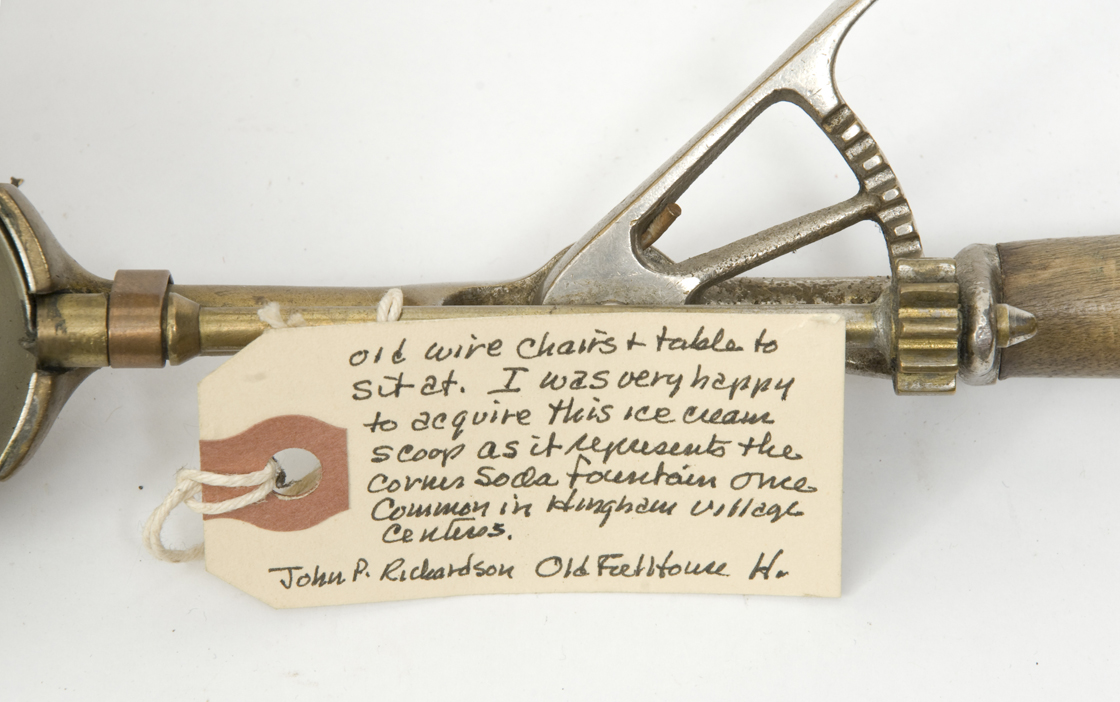 old wire chairs + table to
sit at. I was very happy
to acquire this ice cream
scoop as it represents the
corner Soda fountain once
Common in Hingham village
Centers.
John P. Richardson Old H.